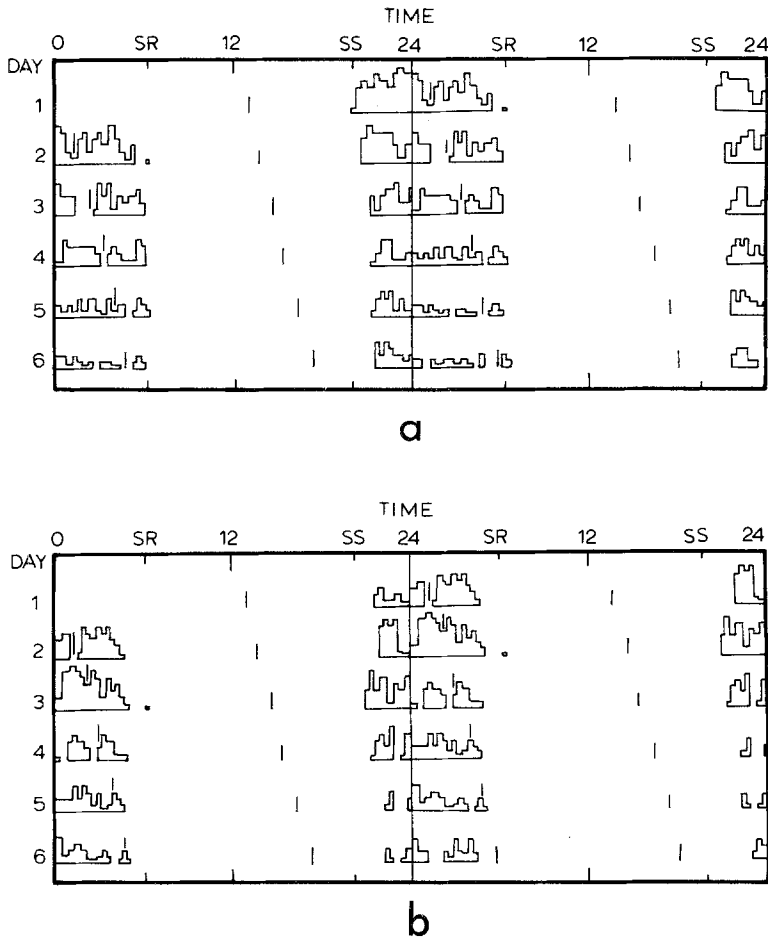 TIME
0 SR 12 SS 24 SR 12 SS 24
DAY
1
2
3
4
5
6
a
TIME
0 SR 12 SS 24 SR 12 SS 24
DAY
1
2
3
4
5
6
b